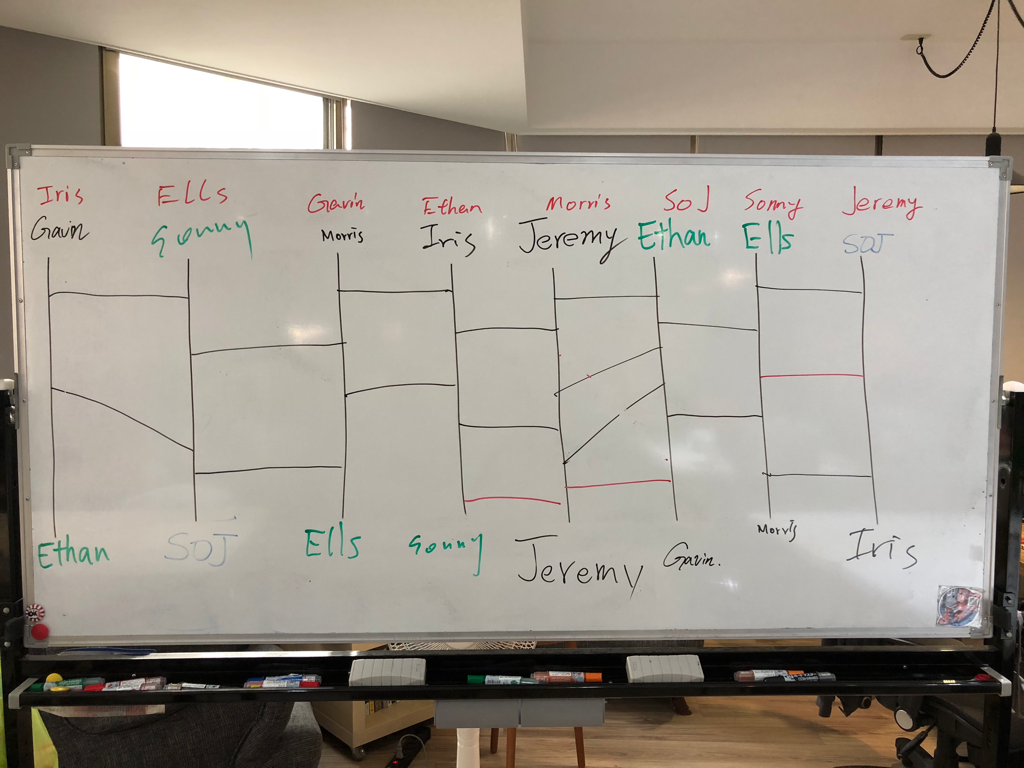 Iris Ells Gavin Ethan Morris SOJ Sonny Jeremy
Gavin Sonny Morris Iris Jeremy Ethan Ells SOJ
Ethan SOJ Ells Sonny Jeremy Gavin. Morris Iris